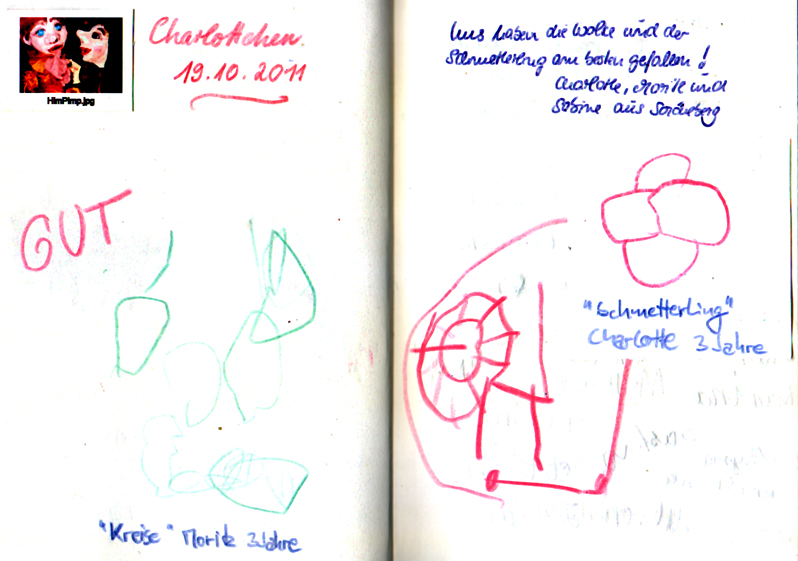 HimPimp.jpg
Charlottchen.
19.10.2011
GUT
"Kreise" Moritz 3 Jahre
Uns haben die Wolke und der
Schmetterling am besten gefallen!
Charlotte, Moritz und
Sabine aus Schöneberg
"Schmetterling"
Charlotte 3 Jahre